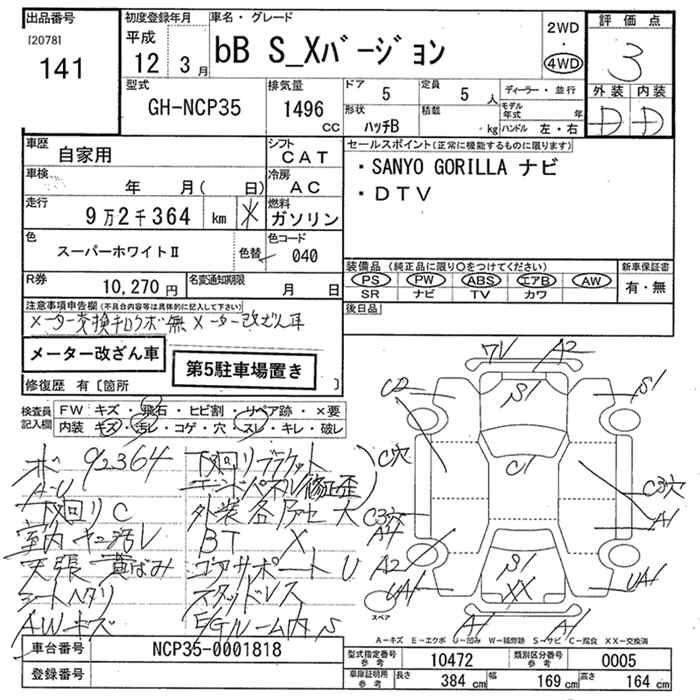 出品番号
[2078]
141
初度登録年月
平成
12 3月
車名・グレード
bB S_Xバージョン
2WD
・
4WD
評価点
3
外装 内装
D D
型式
GH-NCP35
排気量
1496
cc
ドア 5
定員 5人
形状 ハッチB
積載 kg
ディーラー・並行
モデル年式 年
ハンドル 左・右
車歴
自家用
シフト
CAT
車検
年 月( 日)
冷房
AC
走行
9万2千364 km
燃料
ガソリン
色
スーパーホワイトⅡ
色替
色コード
040
R券
10,270円
名変通知期限
月 日
セールスポイント(正常に機能するものに限ります)
・SANYO GORILLA ナビ
・DTV
装備品(純正品に限り○をつけてください)
PS PW ABS エアB AW
SR ナビ TV カワ
新車保証書
有・無
後日品
注意事項申告欄(不具合内容等は具体的に記入して下さい)
メーター交換キロクボ無 メーター改ざん車
メーター改ざん車
第5駐車場置き
修復歴 有〔箇所 〕
検査員
記入欄
FW キズ・飛石・ヒビ割・リペア跡・×要
内装 キズ・汚レ・コゲ・穴・スレ・キレ・破レ
ボ 92364
A-U
下回リC
室内ヤニ汚レ
天張黄ばみ
シートヘタリ
AWキズ
下回リブラケット
エンドパネル修正歪
外装各所セ大
BT X
ゴアサポートU
スタッドレス
EGルーム内S
7V A2
C2
S1
S1
C穴
C1
C3穴
A1
C3穴
A4
A2
UA1
S1
XX
UA1
A1
A1
スペア
A-キズ E-エクボ U-凹み W-補修跡 S-サビ C-腐食 XX-交換済
車台番号
NCP35-0001818
登録番号
型式指定番号
参考
10472
類別区分番号
参考
0005
車庫証明用
参考
長さ 384cm
幅 169cm
高さ 164cm